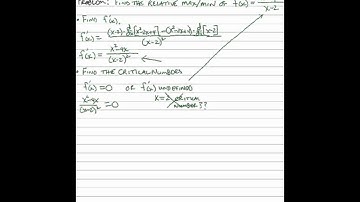 PROBLEM: FIND THE RELATIVE MAX/MIN OF f(x) =
x-2
• FIND f'(x).
f'(x) = (x-2)·d/dx[x²-2x+4] - (x²-2x+4)·d/dx[x-2]
(x-2)²
f'(x) = x²-4x
(x-2)²
• FIND THE CRITICAL NUMBERS
f'(x) = 0 OR f'(x) UNDEFINED
x²-4x
(x-2)² = 0 x=2 CRITICAL
NUMBER??